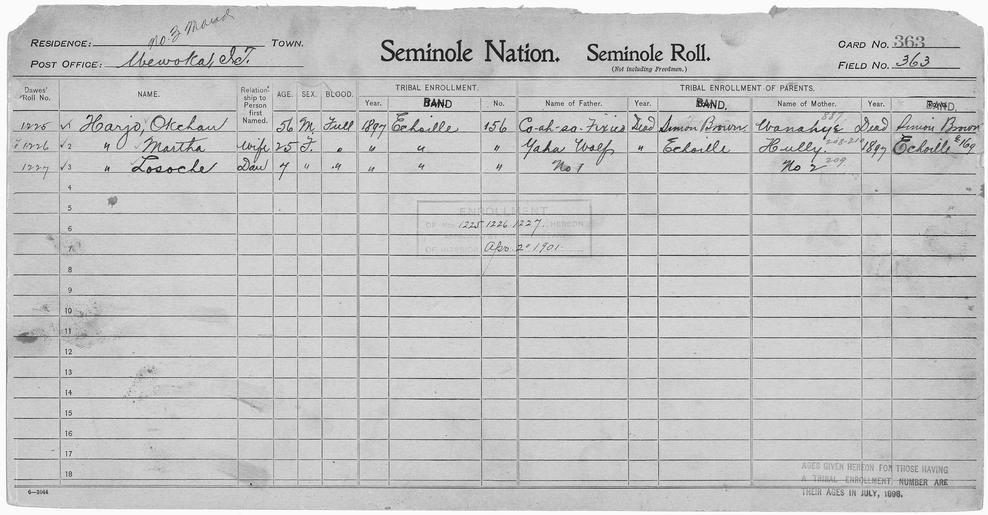 RESIDENCE: No. 3 Maud TOWN.
POST OFFICE: Wewoka, I.T.
Seminole Nation. Seminole Roll.
(Not including Freedmen.)
CARD NO. 363
FIELD NO. 363
Dawes' Roll No. NAME. Relationship to Person first Named. AGE. SEX. BLOOD. TRIBAL ENROLLMENT. TRIBAL ENROLLMENT OF PARENTS.
Year. BAND No. Name of Father. Year. BAND. Name of Mother. Year. BAND.
1225 √1 Harjo, Okchan 56 M. Full 1897 Echoille 156 Co-ah-as-Fixico Dead Simon Brown Wanahye Dead Simon Brown
1226 √2 " Martha Wife 25 F. " " " " Yaha Wolf " Echoille Hully 1897 Echoille
1227 √3 " Losoche Dau 7 " " " " " No 1 No 2 209
4
5
6
7
8
9
10
11
12
13
14
15
16
17
18
ENROLLMENT
OF NOS 1225 1226 1227 HEREON
Apr. 2" 1901.
6—2044
AGES GIVEN HEREON FOR THOSE HAVING
A TRIBAL ENROLLMENT NUMBER ARE
THEIR AGES IN JULY, 1898.